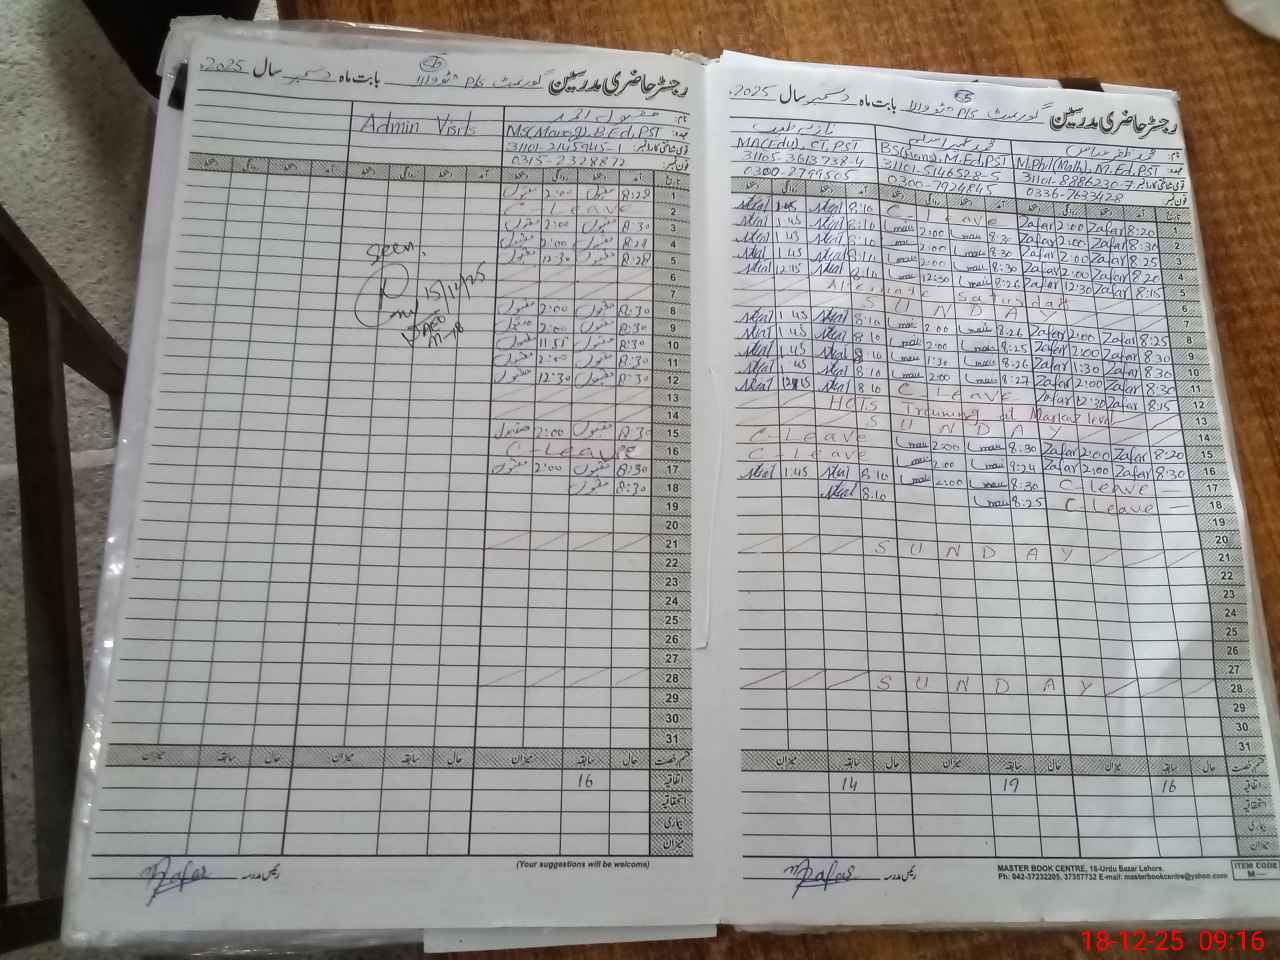 رجسٹر حاضری مدرسین گورنمنٹ P/S ٹو والا بابت ماہ دسمبر سال 2025ء
Admin Visits
نام:
عہدہ: MSc(Manag), B.Ed, PST
قومی شناختی کارڈ نمبر: 31101-2145945-1
فون نمبر: 0315-2328872
تاریخ آمد دستخط روانگی دستخط آمد دستخط روانگی دستخط آمد دستخط روانگی دستخط
1 8:28 مقبول 2:00 مقبول
2 C-Leave
3 8:30 مقبول 2:00 مقبول
4 8:28 مقبول 2:00 مقبول
5 8:28 مقبول 12:30 مقبول
6
7
8 8:30 مقبول 2:00 مقبول
9 8:30 مقبول 2:00 مقبول
10 8:30 مقبول 11:55 مقبول
11 8:30 مقبول 2:00 مقبول
12 8:30 مقبول 12:30 مقبول
13
14
15 8:30 مقبول 2:00 مقبول
16 C-Leave
17 8:30 مقبول 2:00 مقبول
18 8:30 مقبول
19
20
21
22
23
24
25
26
27
28
29
30
31
Seen.
15/12/25
قسم رخصت حال سابقہ میزان حال سابقہ میزان حال سابقہ میزان
اتفاقیہ 16
استحقاقیہ
بیماری
میزان
رئیس مدرسہ Zafar
(Your suggestions will be welcome)
رجسٹر حاضری مدرسین گورنمنٹ P/S ٹو والا بابت ماہ دسمبر سال 2025ء
نام: محمد ظفر عباس
عہدہ: M.Phil(Math), M.Ed, PST BS(Hons), M.Ed, PST MA(Edu), CT, PST
قومی شناختی کارڈ نمبر: 31101-8886230-7 31101-5146528-5 31105-3613738-4
فون نمبر: 0336-7633428 0300-7924845 0300-8799505
تاریخ آمد دستخط روانگی دستخط آمد دستخط روانگی دستخط آمد دستخط روانگی دستخط
1 8:20 Zafar 2:00 Zafar C-Leave 8:10 1:45
2 8:30 Zafar 2:00 Zafar 8:30 2:00 8:10 1:45
3 8:25 Zafar 2:00 Zafar 8:30 2:00 8:10 1:45
4 8:20 Zafar 2:00 Zafar 8:30 2:00 8:10 1:45
5 8:15 Zafar 12:30 Zafar 8:26 12:30 8:10 12:15
6 Alternate Saturday
7 SUNDAY
8 8:25 Zafar 2:00 Zafar 8:26 2:00 8:10 1:45
9 8:30 Zafar 2:00 Zafar 8:25 2:00 8:10 1:45
10 8:30 Zafar 1:30 Zafar 8:26 1:30 8:10 1:45
11 8:30 Zafar 2:00 Zafar 8:27 2:00 8:10 1:45
12 8:15 Zafar 12:30 Zafar C Leave 8:10 12:15
13 Training at Markaz level
14 SUNDAY
15 8:20 Zafar 2:00 Zafar 8:30 2:00 C-Leave
16 8:30 Zafar 2:00 Zafar 8:24 2:00 C-Leave
17 C-Leave 8:30 2:00 8:10 1:45
18 C-Leave 8:25 8:10
19
20
21 SUNDAY
22
23
24
25
26
27
28 SUNDAY
29
30
31
قسم رخصت حال سابقہ میزان حال سابقہ میزان حال سابقہ میزان
اتفاقیہ 16 19 14
استحقاقیہ
بیماری
میزان
رئیس مدرسہ Zafar
MASTER BOOK CENTRE, 16-Urdu Bazar Lahore.
Ph: 042-37232205, 37357732 E-mail: masterbookcentre@yahoo.com
ITEM CODE
M—
18-12-25 09:16